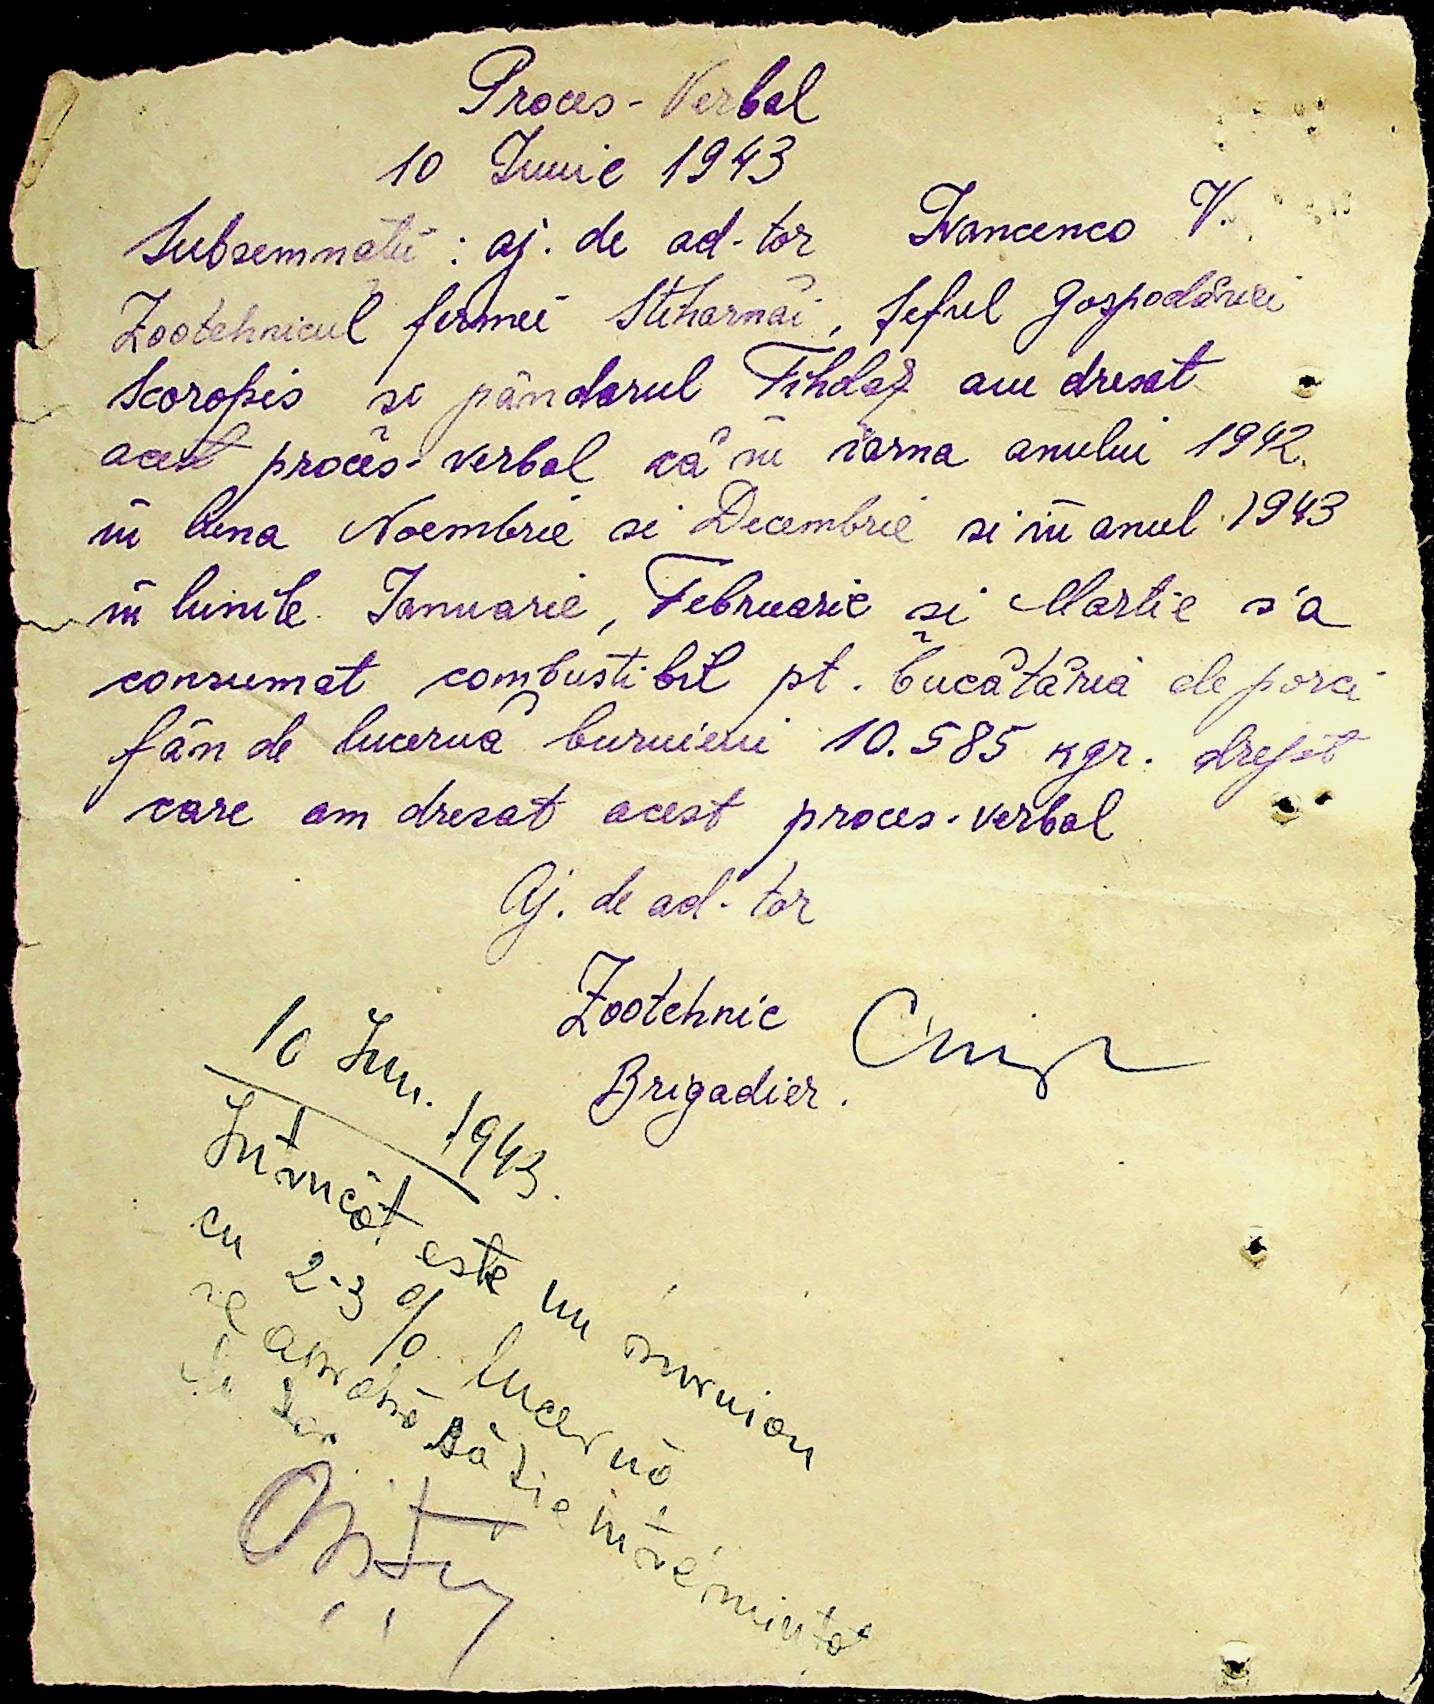 Proces-Verbal
10 Iunie 1943
Subsemnatii: aj. de ad-tor Ivancenco V.
Zootehnicul fermei Stiharnăi, Șeful Gospodăriei
Scoropis si pândarul am dresat
acest proces-verbal că în iarna anului 1942
in luna Noembrie si Decembrie si in anul 1943
in lunile Ianuarie, Februarie si Martie s'a
consumat combustibil pt. bucătăria de porci
fân de lucernă buruieni 10.585 kgr. drept
care am dresat acest proces-verbal
Aj. de ad-tor
Zootehnic
Brigadier.
10 Iun. 1943.
Intrucât este un
cu 2-3 % lucernă
se aprobă să fie intrebuințat